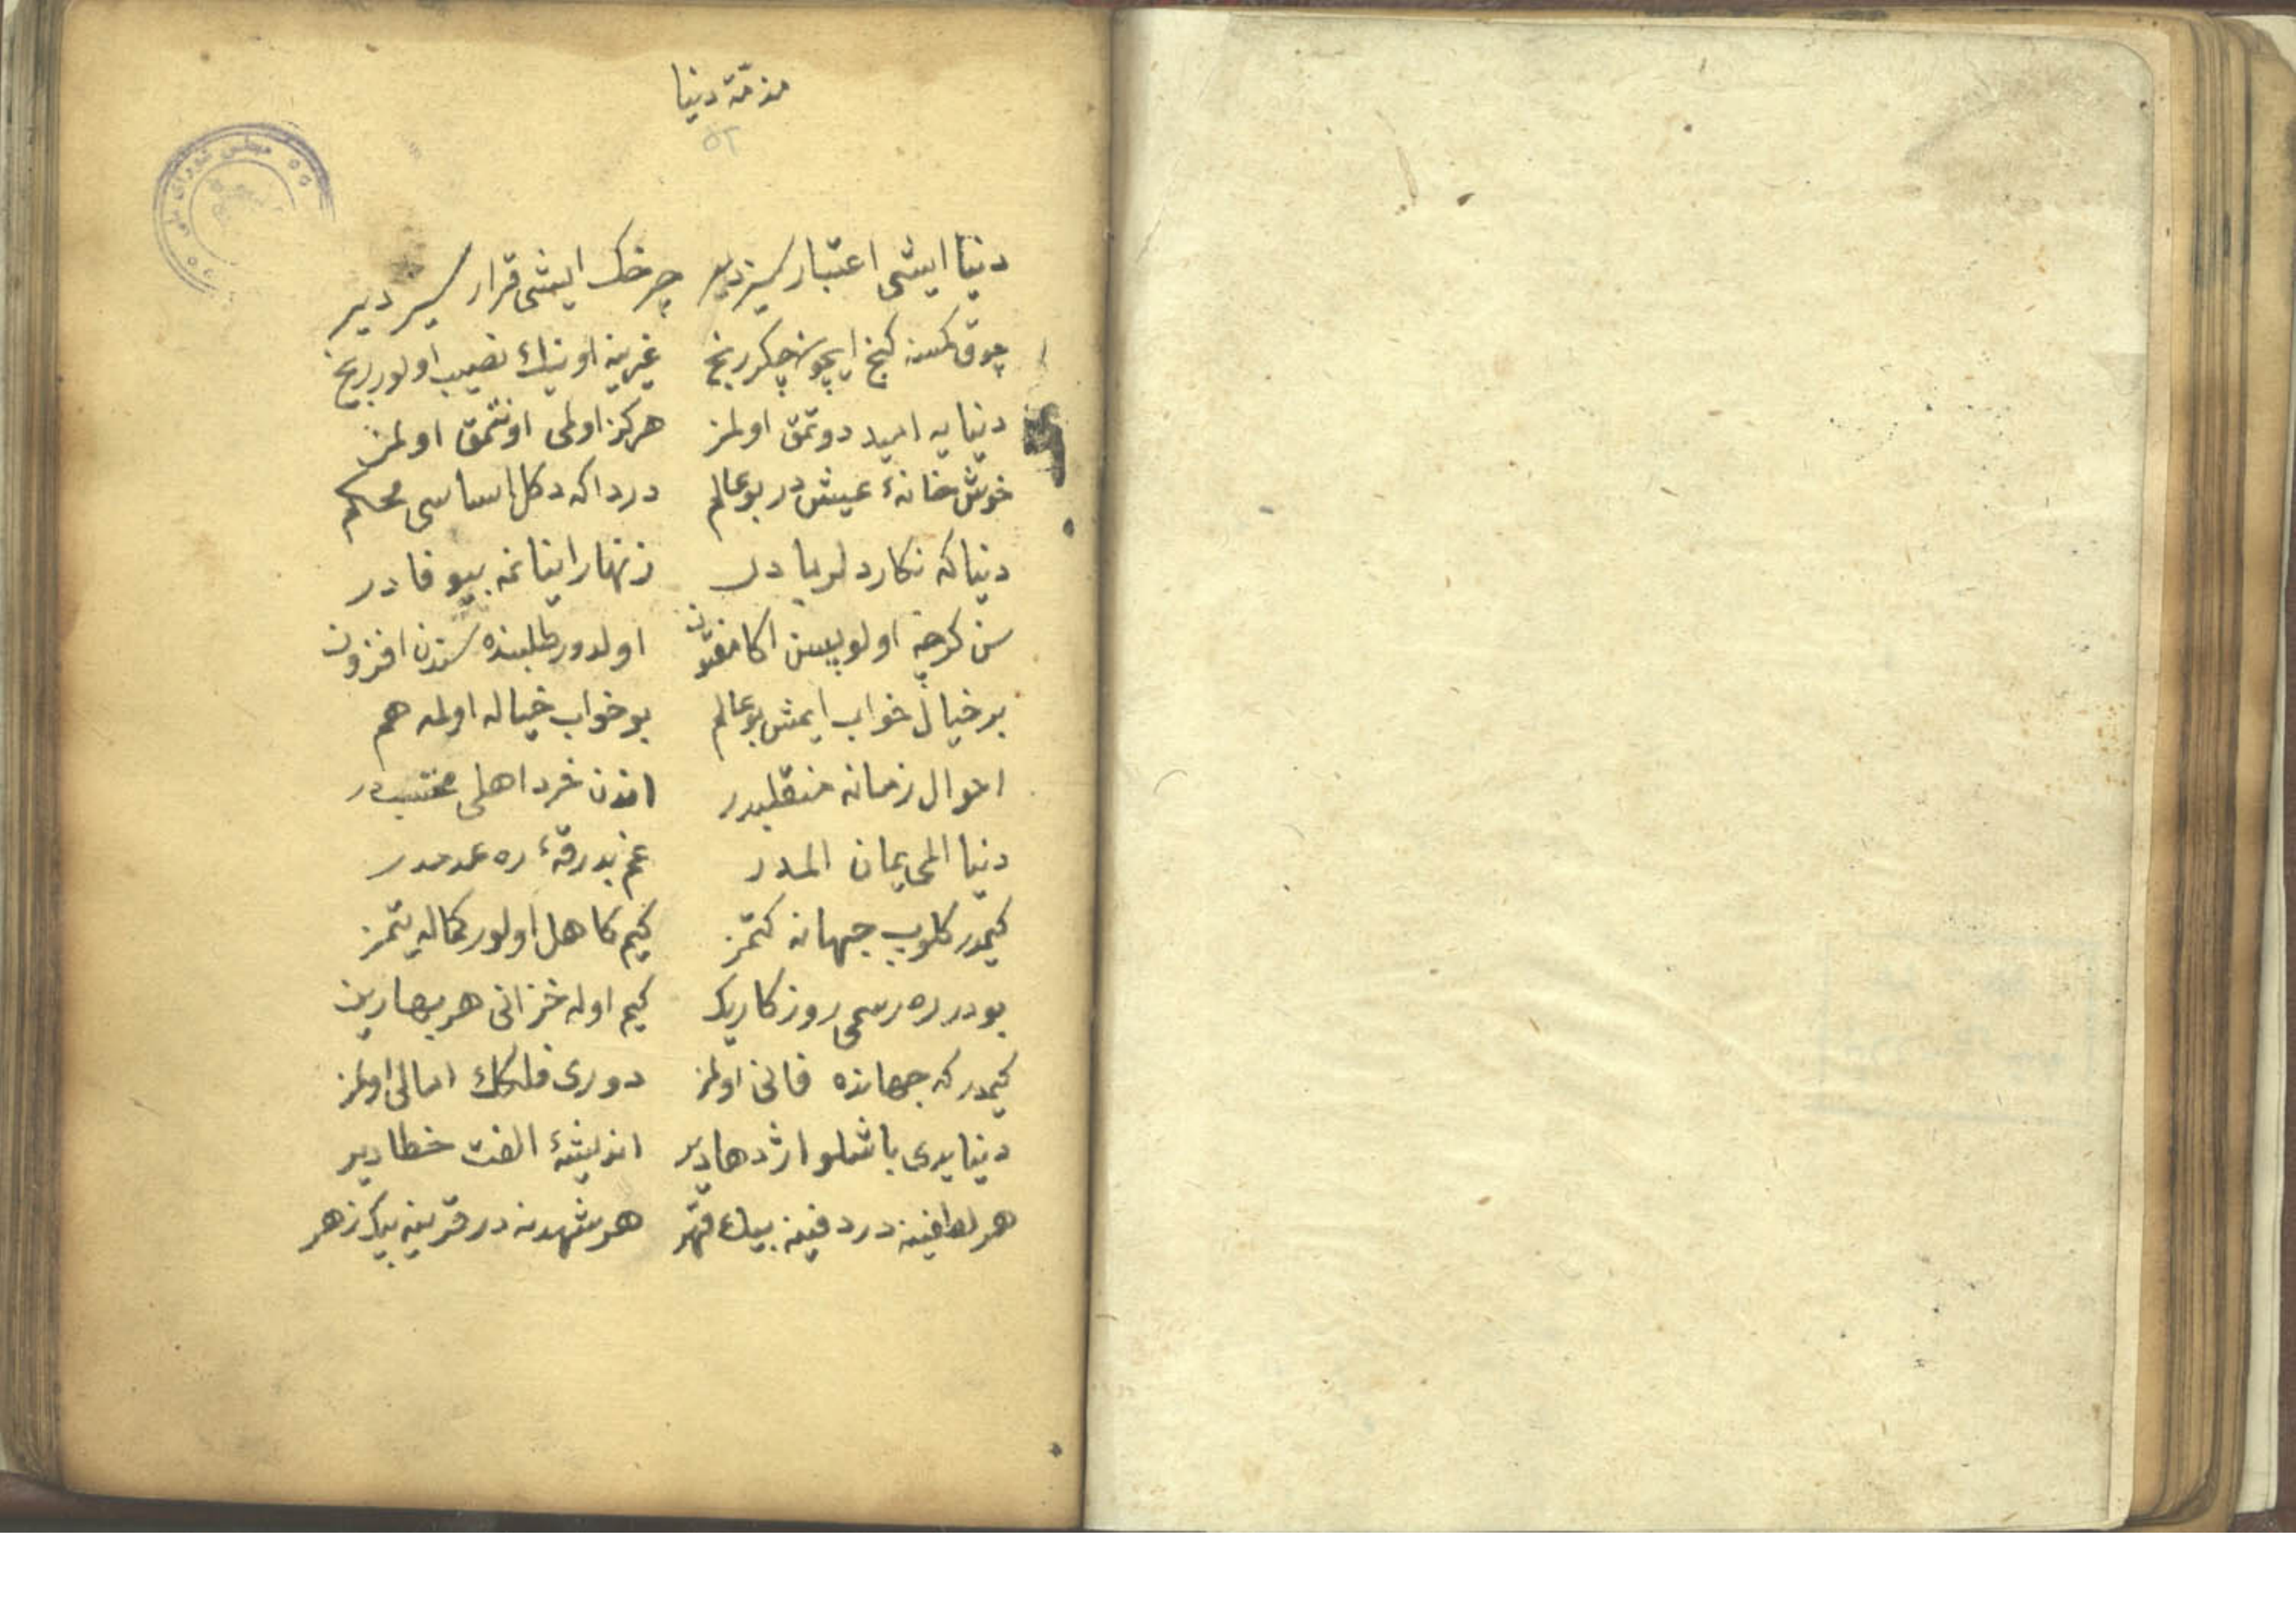 مذمّة دنیا
۵۲
مجلس شورای ملی
دنیا ایشی اعتبار سیزدیر چرخک ایشی قرار سیزدیر
چوق کمسنه کنج ایچون چکر رنج غیرینه اونیك نصیب اولور کنج
دنیایه امید دوتمق اولمز هرکز اولمی اونتمق اولمز
خوش خانهٔ عیش در بو عالم دردا که دکل اساسی محکم
دنیا که نکار دلربا در زنهار اینانمه بیوفا در
سن کرچه اولوپسن اکا مفتون اولدور طلبنده سندن افزون
بر خیال خواب ایمش بو عالم بو خواب خیاله اولمه همم
احوال زمانه منقلبدر اندن خرد اهلی مجتنبدر
دنیا المی یمان المدر غم بدرقهٔ ره عدمدر
کیمدر کلوب جهانه کتمز کیم کاهل اولور کماله یتمز
بودر ره رسمی روزکاریک کیم اوله خزانی هر بهارین
کیمدر که جهانده فانی اولمز دوری فلکك امالی اولمز
دنیا یدی باشلو اژدهادیر اندیشهٔ الفت خطادیر
هر لطفینه در دفینه بیك قهر هر شهدنه در قرینه بیك زهر